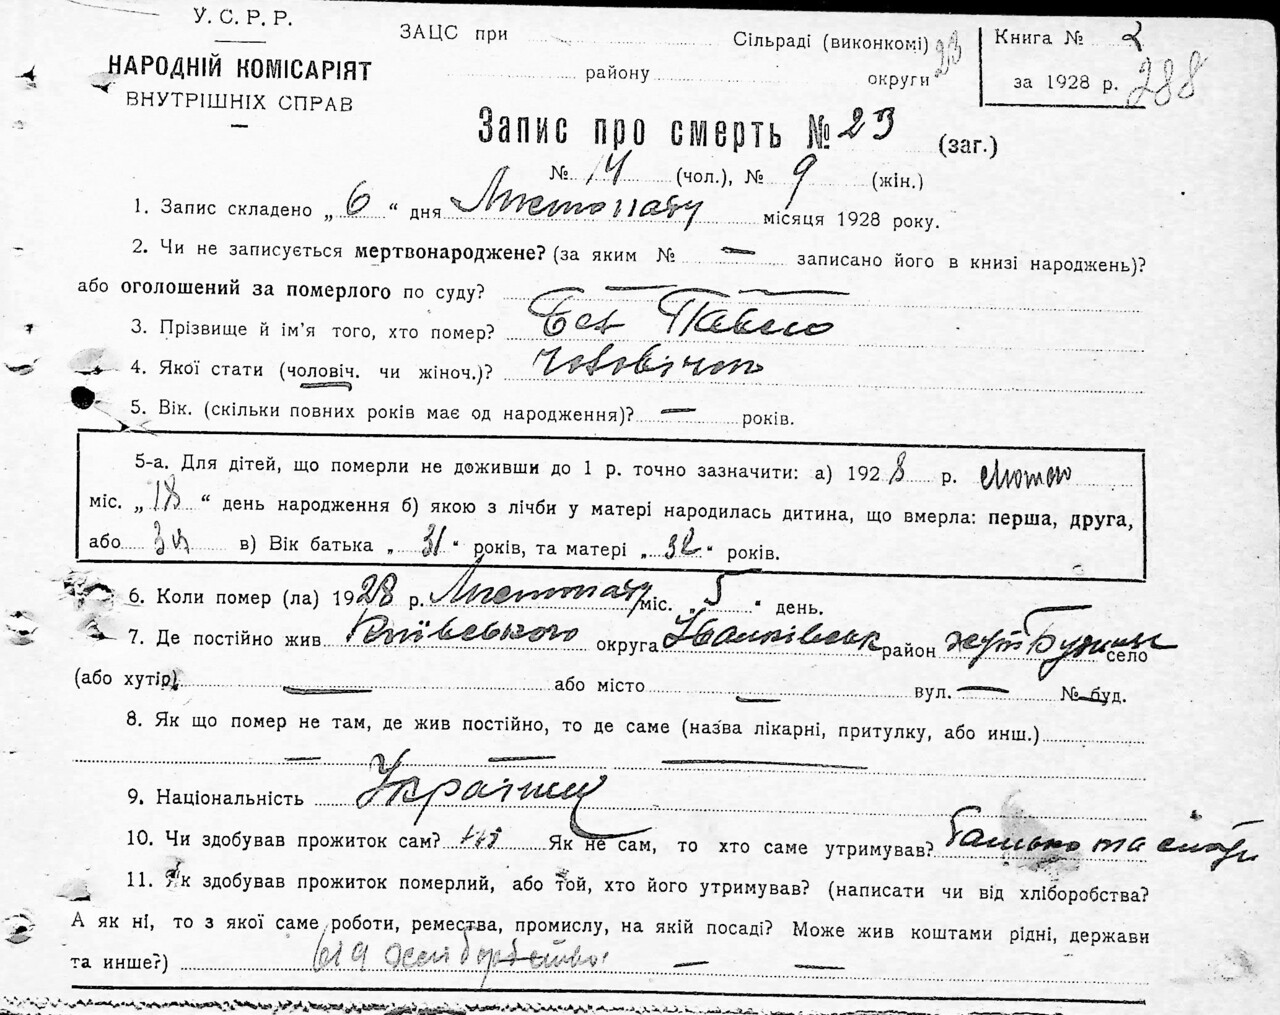 У. С. Р. Р.
НАРОДНІЙ КОМІСАРІЯТ
ВНУТРІШНІХ СПРАВ
ЗАЦС при Сільраді (виконкомі)
району округи 23
Книга № 2
за 1928 р. 288
Запис про смерть № 23 (заг.)
№ 14 (чол.), № 9 (жін.)
1. Запис складено „ 6 “ дня Листопаду місяця 1928 року.
2. Чи не записується мертвонароджене? (за яким № — записано його в книзі народжень)?
або оголошений за померлого по суду? — —
3. Прізвище й ім'я того, хто помер? Павло
4. Якої стати (чоловіч. чи жіноч.)? чоловічої
5. Вік. (скільки повних років має од народження)? — років.
5-а. Для дітей, що померли не доживши до 1 р. точно зазначити: а) 1928 р. лютого
міс. „ 18 “ день народження б) якою з лічби у матері народилась дитина, що вмерла: перша, друга,
або 3я в) Вік батька „ 31 “ років, та матері „ 32 “ років.
6. Коли помер (ла) 1928 р. Листопаду міс. „ 5 “ день.
7. Де постійно жив Київського округа район хут село
(або хутір) — або місто — вул. — № — буд.
8. Як що помер не там, де жив постійно, то де саме (назва лікарні, притулку, або инш.)
— — —
9. Національність Українец
10. Чи здобував прожиток сам? ні Як не сам, то хто саме утримував? батько та
11. Як здобував прожиток померлий, або той, хто його утримував? (написати чи від хліборобства?
А як ні, то з якої саме роботи, ремества, промислу, на якій посаді? Може жив коштами рідні, держави
та инше?) від хліборобства — —